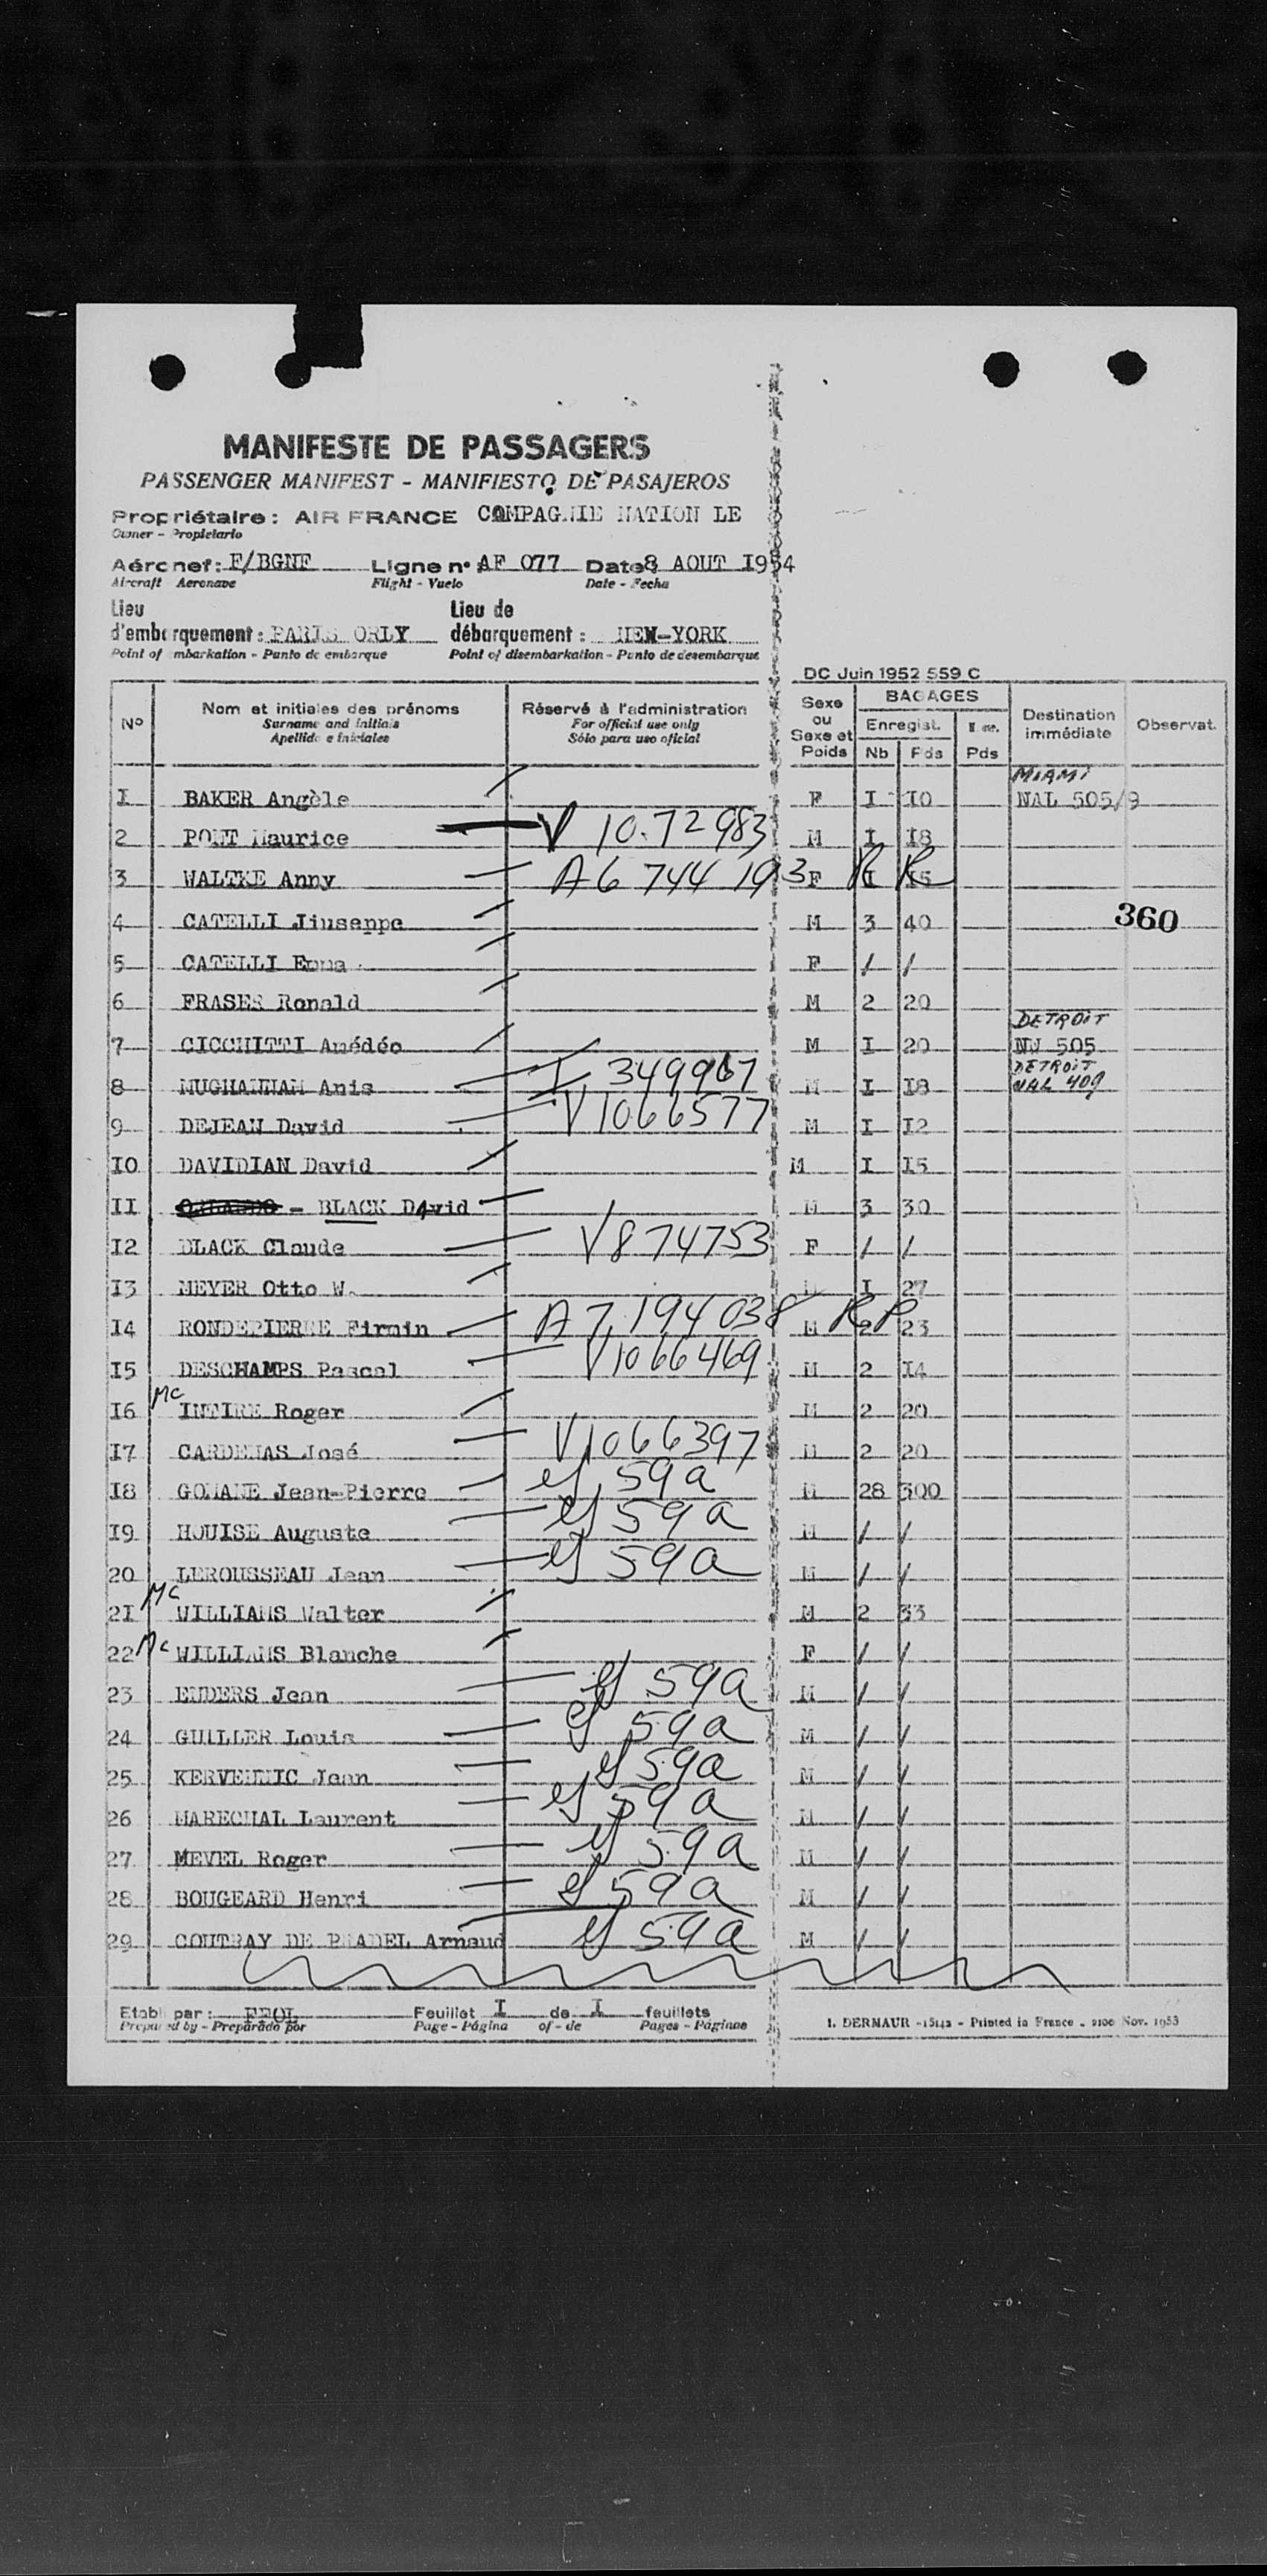 MANIFESTE DE PASSAGERS
PASSENGER MANIFEST - MANIFIESTO DE PASAJEROS
Propriétaire : AIR FRANCE COMPAGNIE NATION LE
Owner - Propietario
Aéronef : F/BGNF Ligne n° AF 077 Date 8 AOUT I954
Aircraft Aeronave Flight - Vuelo Date - Fecha
Lieu d'embarquement : PARIS ORLY Lieu de débarquement : NEW-YORK
Point of embarkation - Punto de embarque Point of disembarkation - Punto de desembarque
DC Juin 1952 559 C
N° Nom et initiales des prénoms Réservé à l'administration Sexe ou Sexe et Poids BAGAGES Destination immédiate Observat.
Surname and initials For official use only Enregist.
Apellido e iniciales Sólo para uso oficial Nb Pds Pds
MIAMI
I BAKER Angèle F I IO NAL 505/9
2 PONT Maurice V 10.72983 M I I8
3 WALTKE Anny A6 744 193 F I I5 R R
4 CATELLI Jiuseppe M 3 40 360
5 CATELLI Emma F / /
6 FRASER Ronald M 2 20
DETROIT
7 CICCHITTI Amédéo M I 20 NW 505
DETROIT
8 MUGHANNAM Anis I 349967 M I I8 NAL 409
9 DEJEAN David V1066577 M I I2
IO DAVIDIAN David M I I5
II - BLACK David M 3 30
I2 BLACK Claude V874753 F / /
I3 MEYER Otto W. M I 27
I4 RONDEPIERRE Firmin A7,194038 M 2 23 R R
I5 DESCHAMPS Pascal V1066469 M 2 I4
I6 Mc INTIRE Roger M 2 20
I7 CARDENAS José V1066397 M 2 20
I8 GOMANE Jean-Pierre 59a M 28 300
I9 HOUISE Auguste 59a M / /
20 LEROUSSEAU Jean 59a M / /
2I Mc WILLIAMS Walter M 2 33
22 Mc WILLIAMS Blanche F / /
23 ENDERS Jean 59a M / /
24 GUILLER Louis 59a M / /
25 KERVENNIC Jean 59a M / /
26 MARECHAL Laurent 59a M / /
27 MEVEL Roger 59a M / /
28 BOUGEARD Henri 59a M / /
29 COUTRAY DE PRADEL Arnaud 59a M / /
Etabli par : Feuillet I de I feuillets
Prepared by - Preparado por Page - Página of - de Pages - Páginas
I. DERMAUR - 15142 - Printed in France - 2100 Nov. 1953